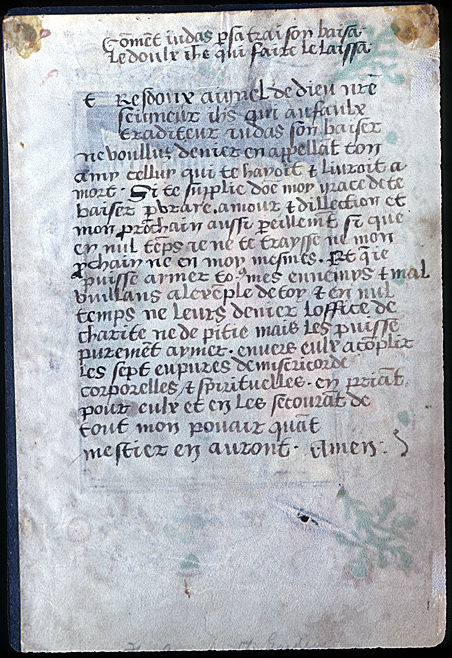 Comẽt iudas p sa traison baisa
Le doulx ihs qui faire le laissa
t Resdoux aignel de dieu nr̃e
seigneur ihs qui au faulx
traditeur iudas son baiser
ne voullus denier en appellãt ton
amy celluy qui te hayoit & livroit a
mort. Si te suplie dõe moy grace de te
baiser p vraye amour & dillection et
mon prochain aussi peillemẽt si que
en nul tẽps ie ne te traysse ne mon
pchain ne en moy mesmes. Et q̃ ie
puisse aymer to9 mes ennemys & mal
vuillans a l exẽple de toy & en nul
temps ne leurs denier loffice de
charite ne de pitie mais les puisse
puremẽt aymer. envers eulx acõplir
les sept euvres de misericorde
corporelles & spirituelles. en priãt
pour eulx et en les secourãt de
tout mon povair quãt
mestier en auront. Amen.